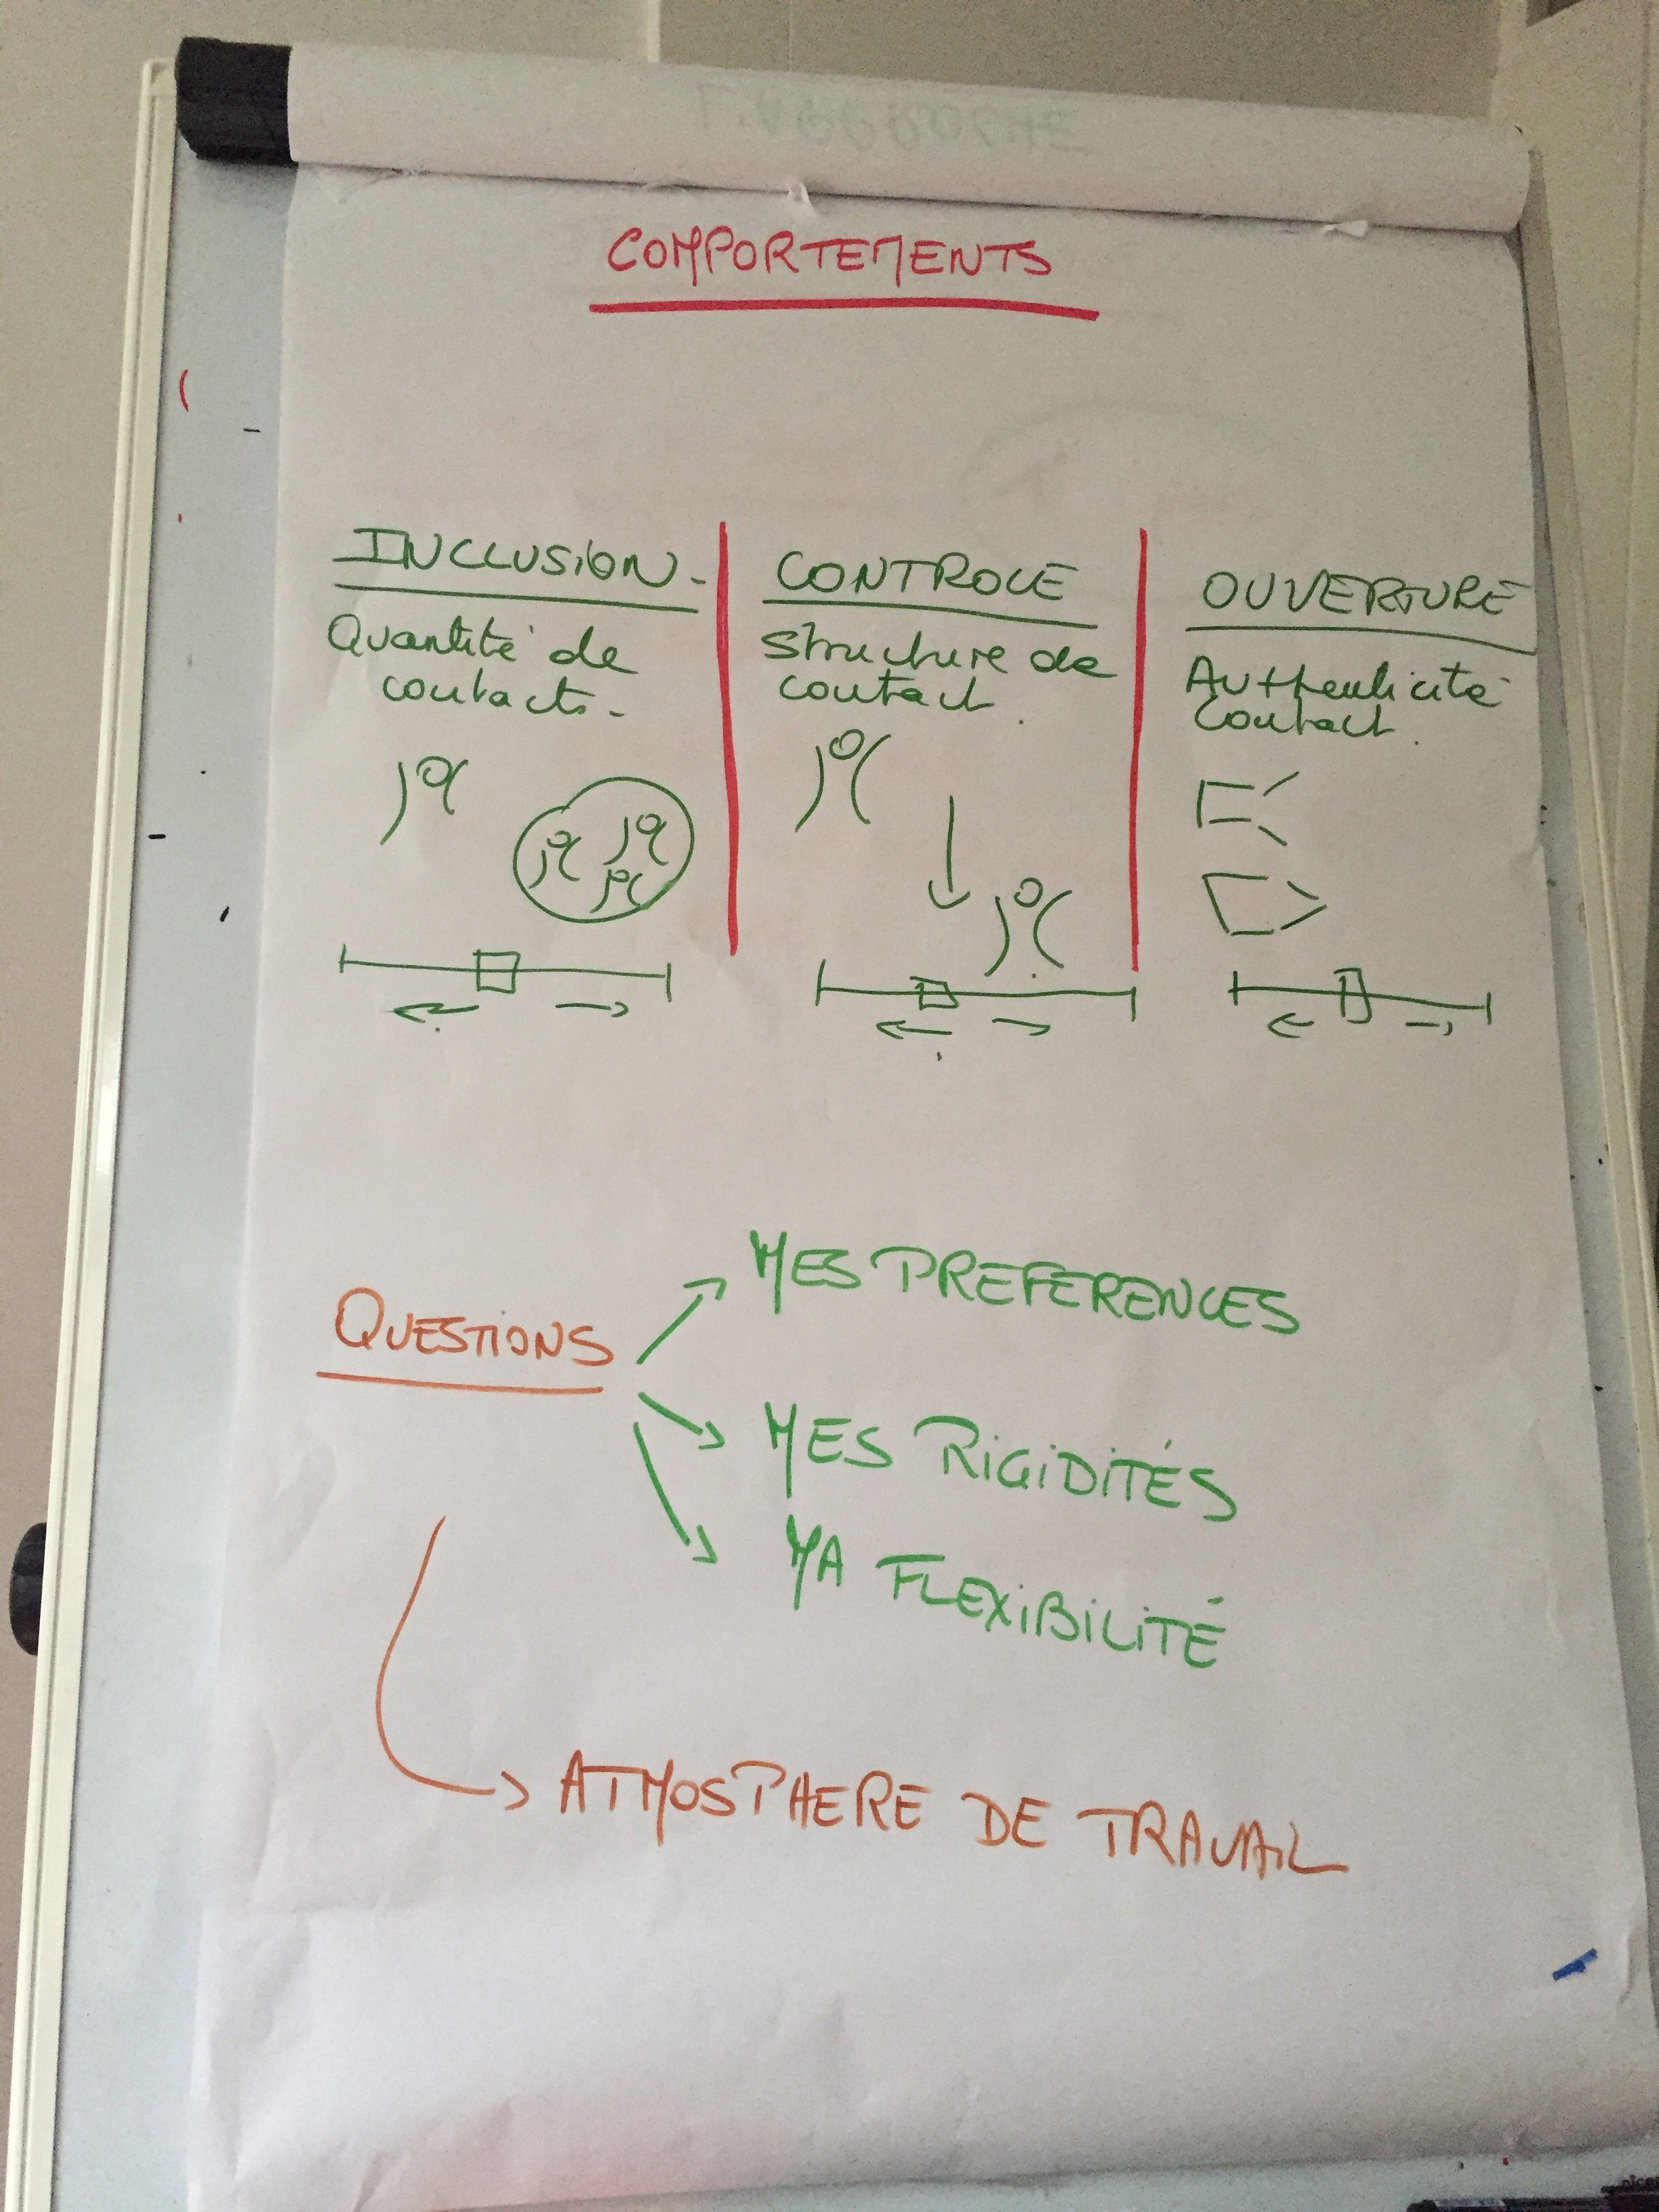 COMPORTEMENTS
INCLUSION - CONTROLE OUVERTURE
Quantité de
contacts -
Structure de
contact.
Authenticité
contact.
QUESTIONS
MES PREFERENCES
MES RIGIDITÉS
MA FLEXIBILITÉ
ATMOSPHERE DE TRAVAIL